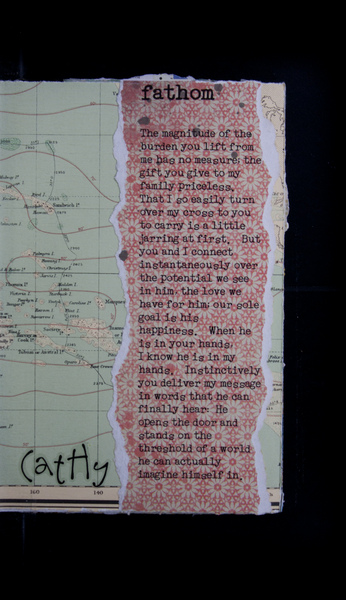 fathom
The magnitude of the
burden you lift from
me has no measure; the
gift you give to my
family priceless.
That I so easily turn
over my cross to you
to carry is a little
jarring at first. But
you and I connect
instantaneously over
the potential we see
in him; the love we
have for him; our sole
goal is his
happiness. When he
is in your hands,
I know he is in my
hands. Instinctively
you deliver my message
in words that he can
finally hear. He
opens the door and
stands on the
threshold of a world
he can actually
imagine himself in.
CatHy
160 140